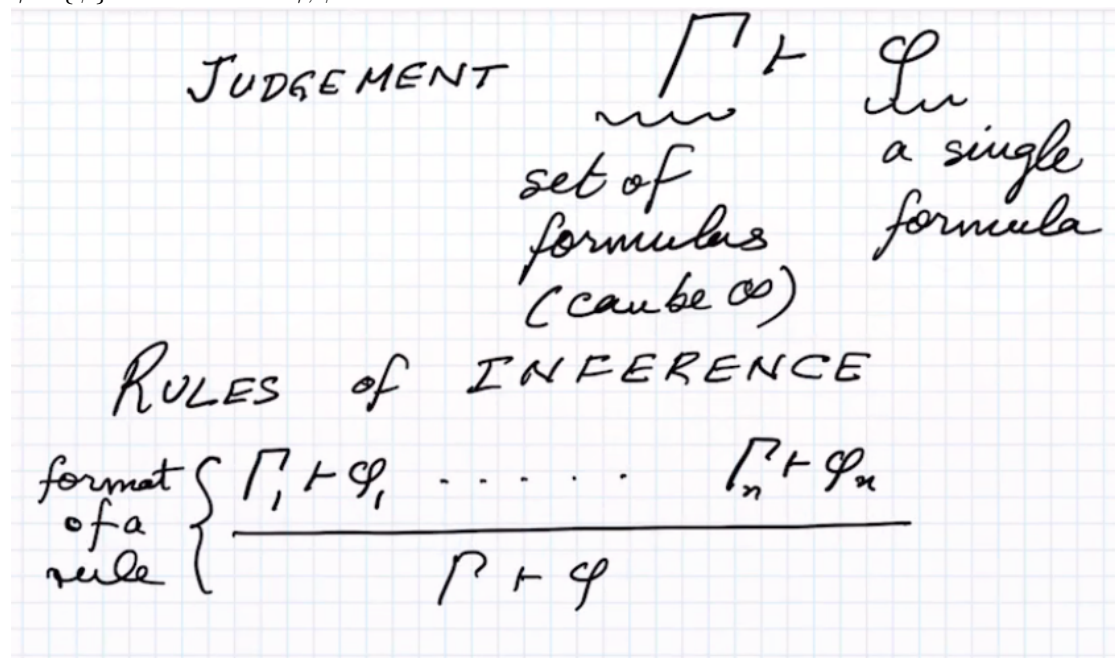 JUDGEMENT Γ ⊢ φ
set of
formulas
(can be ∞)
a single
formula
RULES of INFERENCE
format of a rule { Γ₁ ⊢ φ₁ . . . . . . Γₙ ⊢ φₙ
Γ ⊢ φ